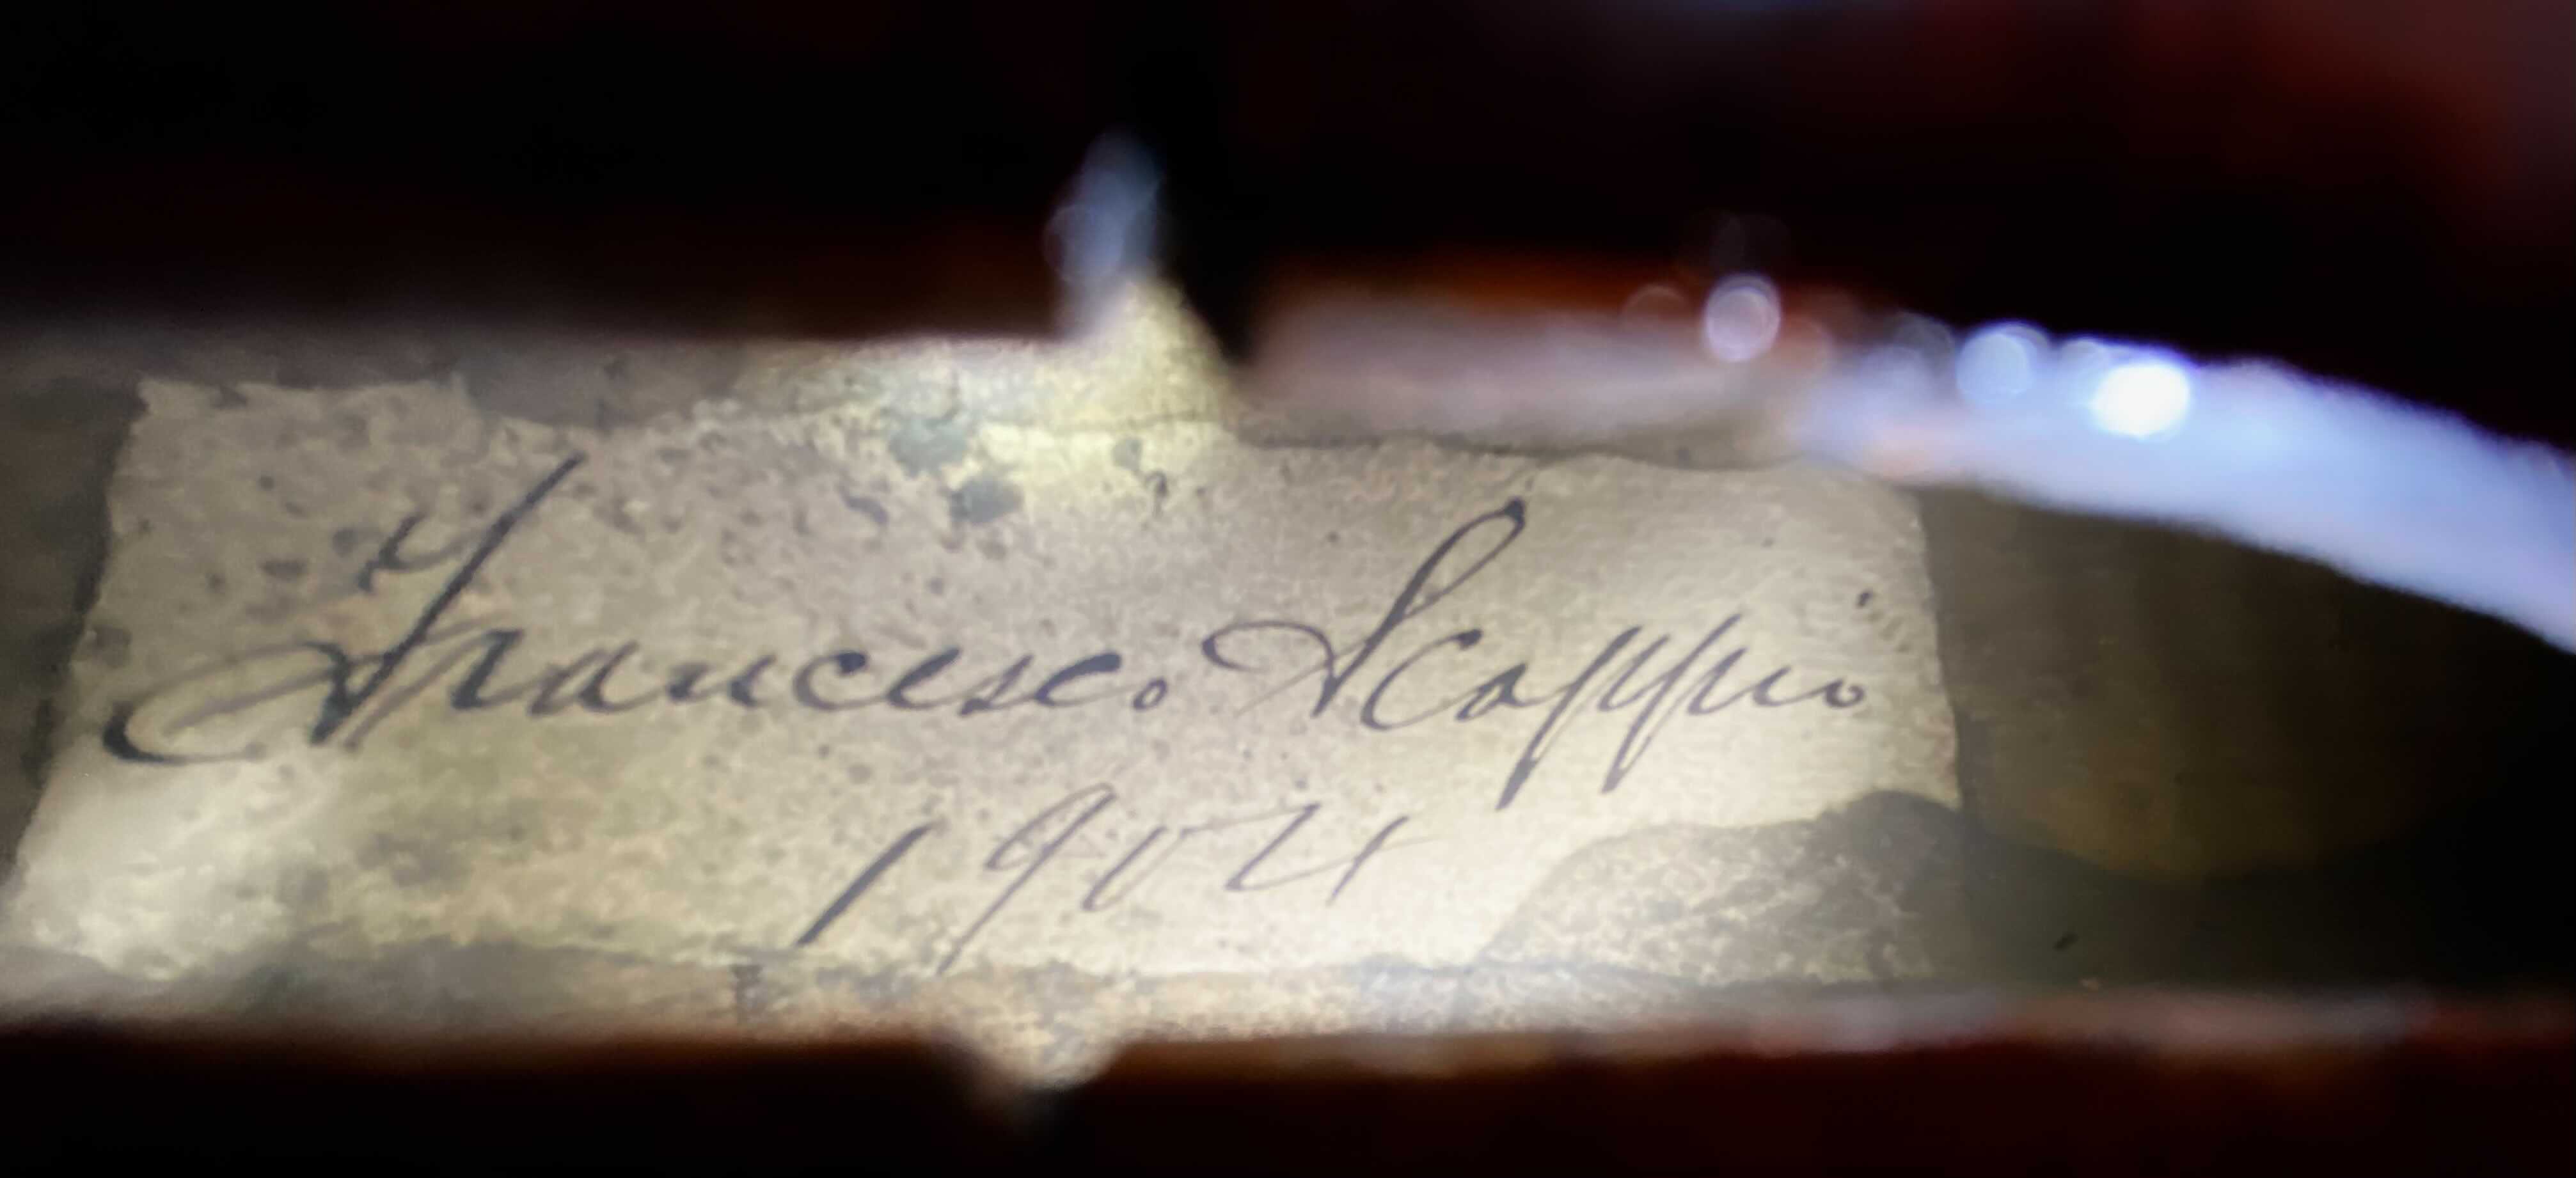 Francesco Scoppio
1904